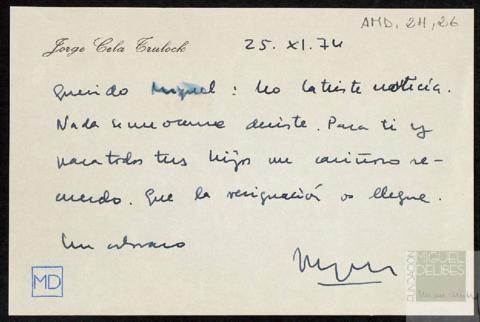 AMD, 2H, 26
Jorge Cela Trulock
25. XI. 74
Querido Miguel: Leo la triste noticia.
Nada se me ocurre decirte. Para ti y
para todos tus hijos un cariñoso re-
cuerdo. Que la resignación os llegue.
Un abrazo
MD
FUNDACIÓN
MIGUEL
DELIBES